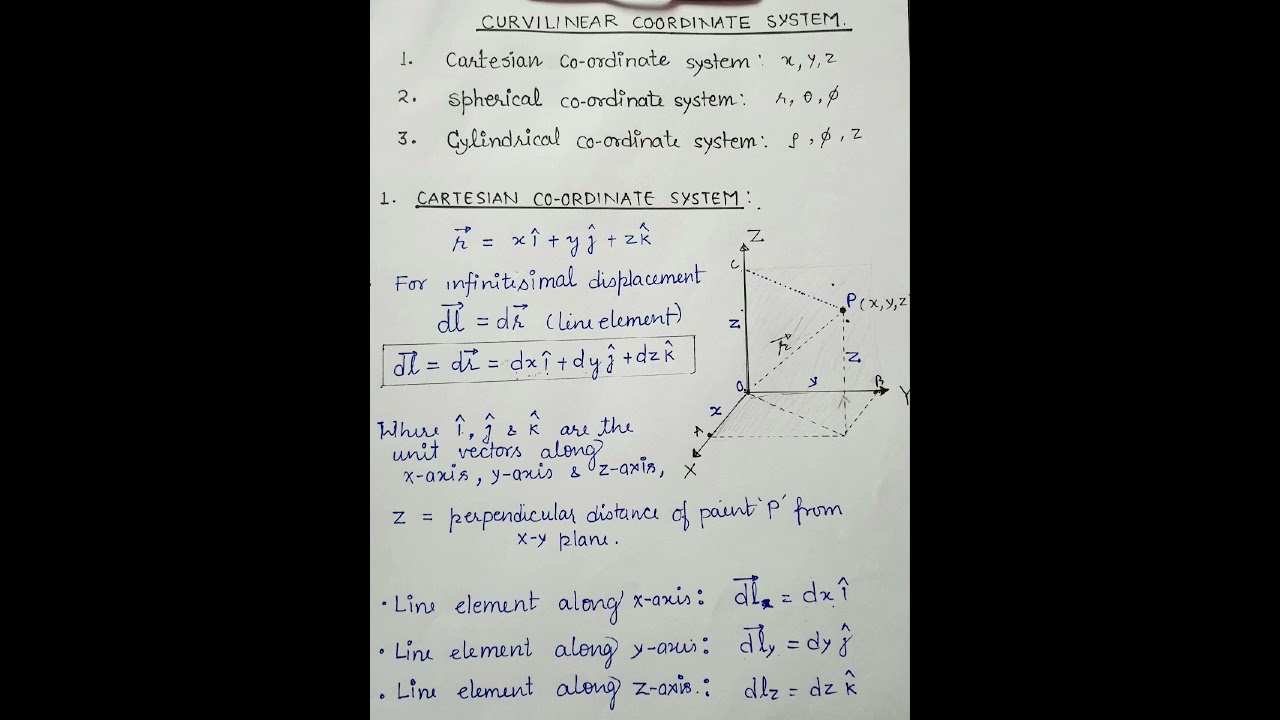 CURVILINEAR COORDINATE SYSTEM.
1. Cartesian co-ordinate system: x, y, z
2. spherical co-ordinate system: r, θ, ϕ
3. Cylindrical co-ordinate system: ρ, ϕ, z
1. CARTESIAN CO-ORDINATE SYSTEM:
r⃗ = xî + yĵ + zk̂
For infinitisimal displacement
d⃗l = dr⃗ (line element)
d⃗l = dr⃗ = dxî + dyĵ + dzk̂
Where î, ĵ & k̂ are the
unit vectors along
x-axis, y-axis & z-axis,
Z
C
P(x,y,z)
z
r⃗
z
O
y
B
Y
x
A
X
z = perpendicular distance of point 'P' from
x-y plane.
• Line element along x-axis: d⃗lx = dx î
• Line element along y-axis: d⃗ly = dy ĵ
• Line element along z-axis: dlz = dz k̂